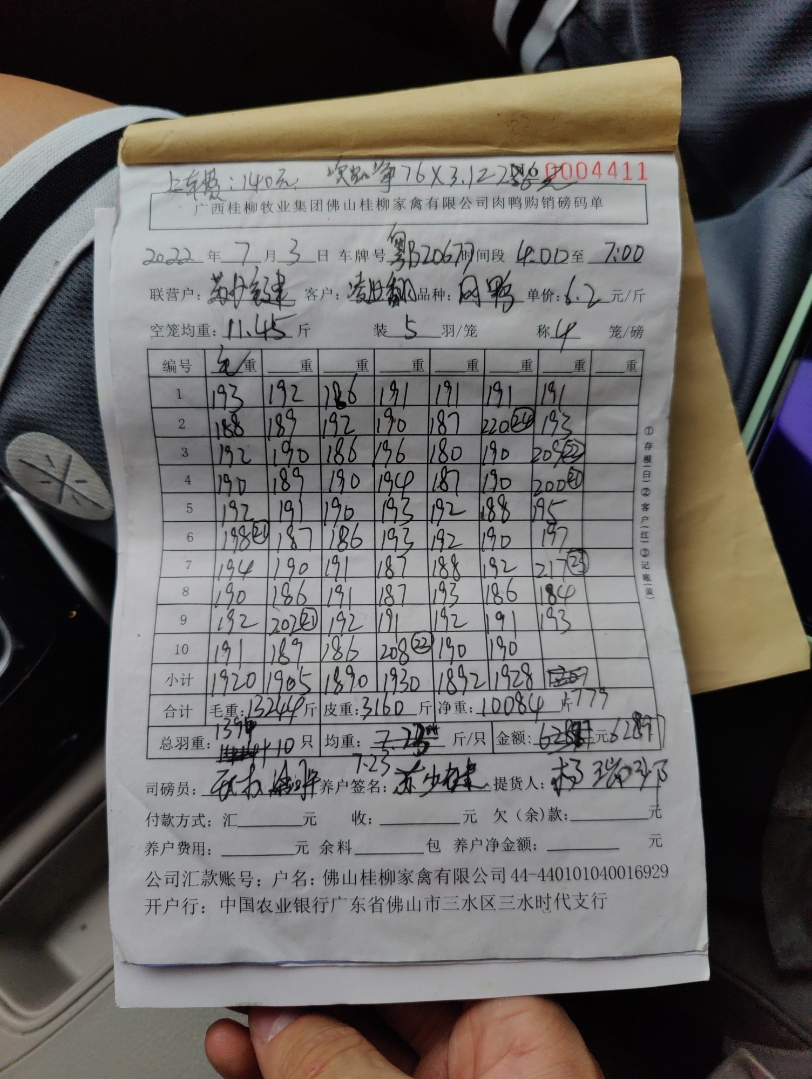 上车费：140元 76×3.1 No 0004411
广西桂柳牧业集团佛山桂柳家禽有限公司肉鸭购销磅码单
2022 年 7 月 3 日 车牌号 粤 时间段 4:00 至 7:00
联营户： 客户： 品种： 鸭 单价：6.2 元/斤
空笼均重：11.45 斤 装 5 羽/笼 称 4 笼/磅
编号 毛重 重 重 重 重 重 重 重
1 193 192 186 191 191 191 191
2 188 189 192 190 187 220㉔ 193
3 192 190 186 196 180 190 209㉒
4 190 189 190 194 187 190 200㉑
5 192 191 190 193 192 188 195
6 198㉑ 187 186 193 192 190 197
7 194 190 191 187 188 192 217㉓
8 190 186 191 187 193 186 184
9 192 202㉑ 192 191 192 191 193
10 191 189 186 208㉒ 190 190
小计 1920 1905 1890 1930 1892 1928 1779
合计 毛重：13244 斤 皮重：3160 斤 净重：10084 斤
总羽重： 只 均重： 7.23 斤/只 金额： 元
司磅员： 养户签名： 提货人：
付款方式：汇 元 收： 元 欠（余）款： 元
养户费用： 元 余料 包 养户净金额： 元
公司汇款账号：户名：佛山桂柳家禽有限公司 44-440101040016929
开户行：中国农业银行广东省佛山市三水区三水时代支行
①存根(白)②客户(红)③记账(黄)